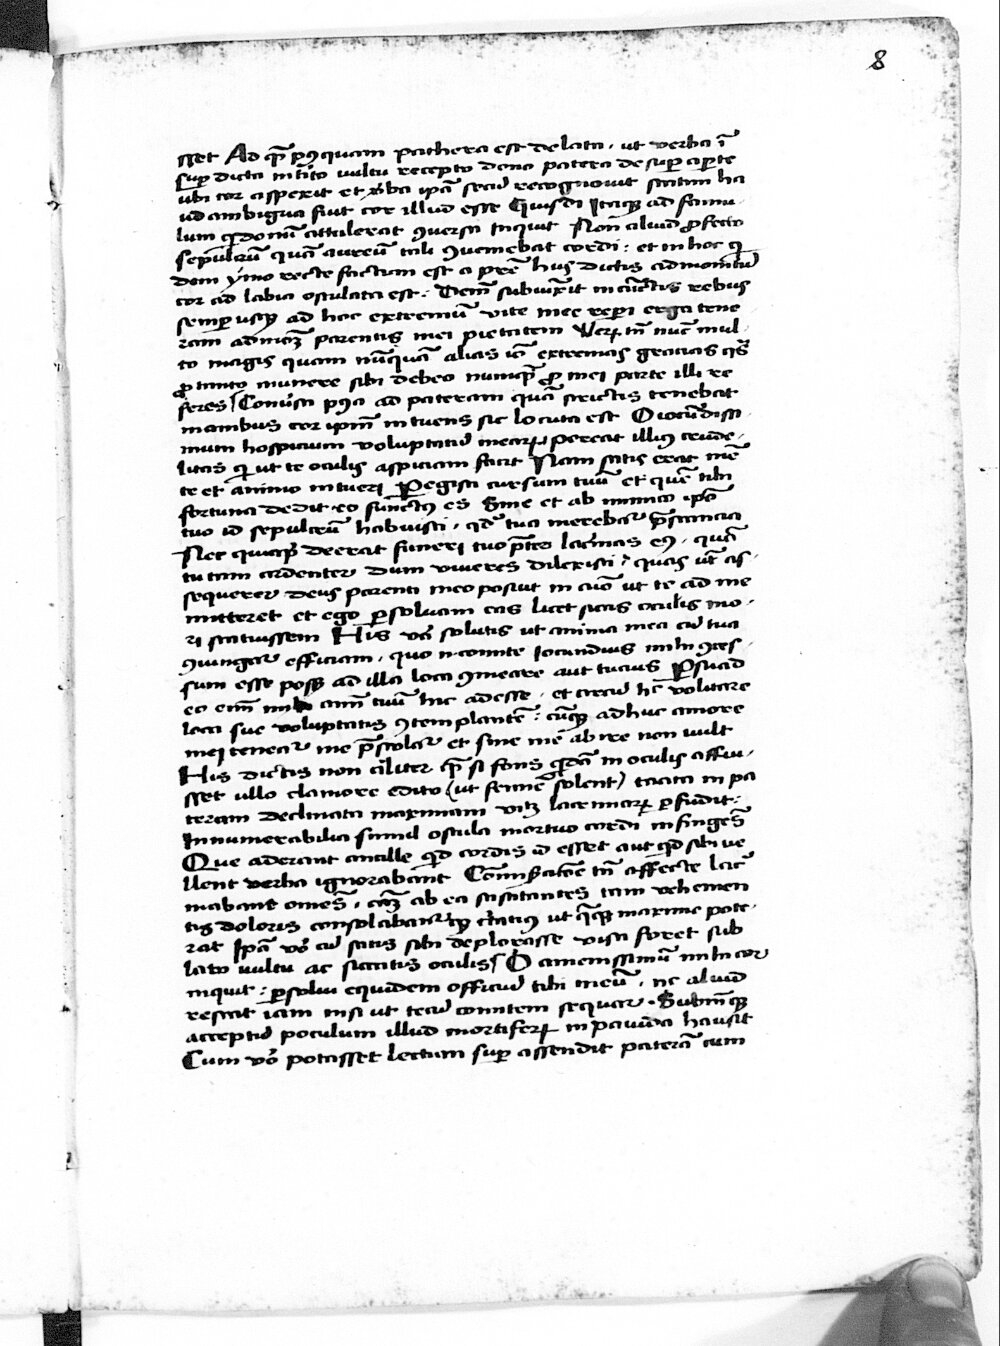 8
sset Ad q̄ꝫ p9quam pathera est delata . ut verba ī
sup̱ dicta intēto vultu recepto dono patera desup̱ ap̱te
ubi cor aspexit et v̄ba ip̄ā secū recognovit statim ha
ud ambigua fuit cor illud esse Guisdi Itaqꝫ ad famu
lum q̄ donū attulerat 9versa inquit Nōn aliud ꝓfecto
sepulcrū quā aureū tali 9veniebat cordi : et in hoc q̄
dem ymo recte factum est a pr̄e hiis dictis admonitū
cor ad labia osculata est : Dein̄ subiunxit in cūctis rebus
semp̱ usqꝫ ad hoc extremū vite mee rep̱i erga tene
ram admoꝫ parentis mei pietatem Verꝝ tn̄ nūc mul
to magis quam nūquā alias iō extremas gracias q̄s
ꝓ tanto munere sibi debeo numq̄ꝫ ꝓ mei parte illi re
feres Conversa p9ea ad pateram quā strictis tenebat
manibus cor ip̄m̄ intuens sic locuta est O iocūdissi
mum hospicium voluptatū mearꝝ pereat illi9 crude
litas q̄ ut te oculis aspiciam facit Nam satis erat mē
te et animo intueri Peregisti cursum tuū et quē tibi
fortuna dedit eo funct9 es Sine et ab inimico ip̄o
tuo id sepulcrū habuisti . qd̄ tua merebar̄ p̄stancia
Nec quicq̄ꝫ deerat funeri tuo p̄ter lacrimas ei9 . quā
tu tam ardenter dum viveres dilexisti : quas ut as
sequerer deus parenti meo posuit in aīo ut te ad me
mitteret et ego p̱solvam eas licet siccis oculis mo
ri statuissem His v̄o solutis ut anima mea cū tua
9iungar̄ efficiam . quo n̄ comite iocundius mihi 9ces
sum esse possꝫ ad illa loca 9meare aut tucius P̱suad
eo eīm mihi aīam tuā hic adesse . et circū hē volitare
loca sue voluptatis 9templantē : cūqꝫ adhuc amore
mei tenear̄ me p̄stolar̄ et sine me abire non vult
His dictis non aliter q̄ꝫ si fons q̄dā in oculis affui
sset ullo clamore edito (ut femīe solent) tacita in pa
teram declinata maximam vim lacrimarꝝ p̱fudit :
Innumerabilia simul oscula mortuo cordi infingēs
Que aderant ancille qd̄ cordis id esset aut qd̄ sibi ve
llent verba ignorabant Com̄iseratōe tn̄ affecte lacri
mabant̄ omēs . eāqꝫ ab ea suscitantes tam vehemen
tis doloris consolabant̄ur q̄ꝫ gratius ut q̄qꝫ maxime pote
rat Ip̄a v̄o cū satis sibi deplorasse visa foret sub
lato vultu ac siccatis oculis O amenissimū mihi cor
inquit : p̱solvi equidem officiū tibi meū . nc̄ aliud
restat iam nisi ut tecū comitem sequar . Subinqꝫ
acceptū poculum illud mortiferꝝ in pavida hausit
Cum v̄o potasset lectum sup̱ assendit paterā cum